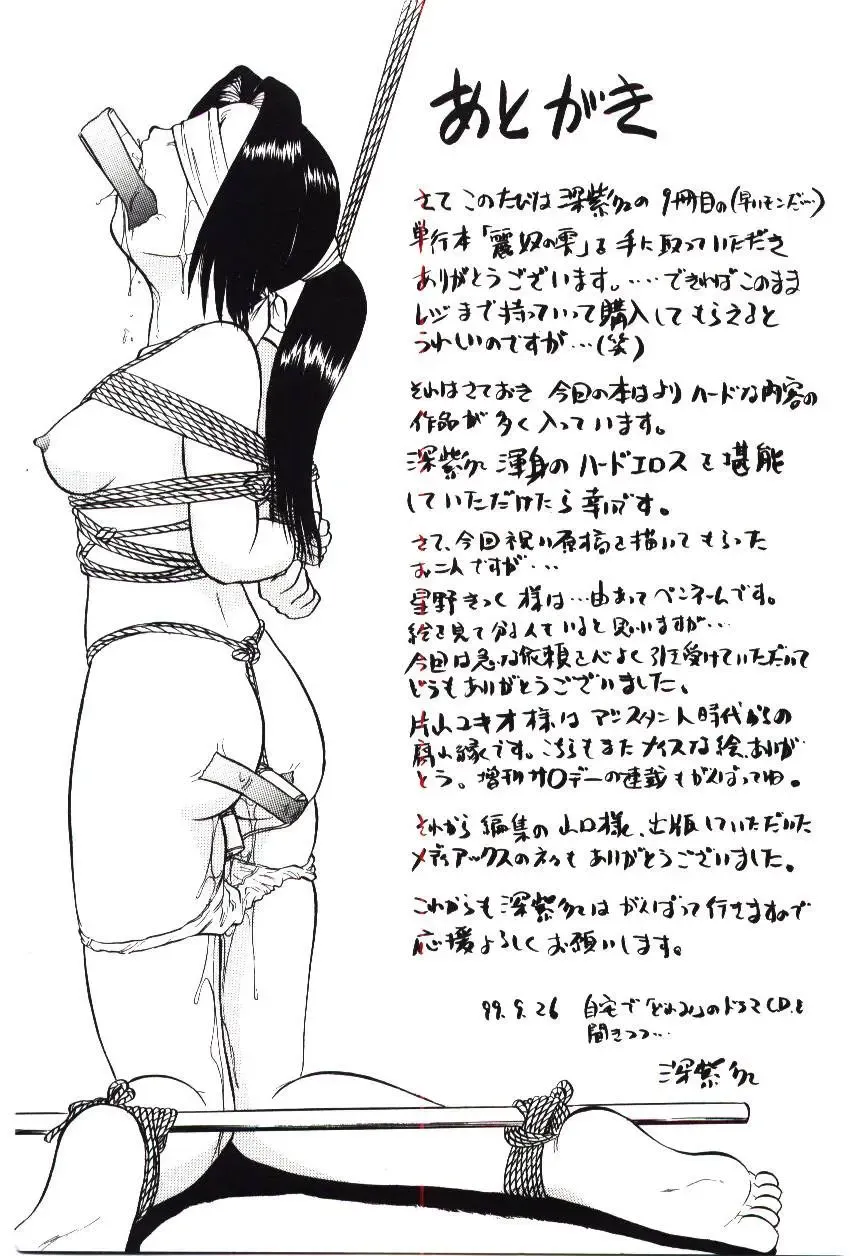 あとがき
さて このたびは 深紫多の 9冊目の(早いモンだ…)
単行本「麗奴の雫」を 手に取っていただき
ありがとうございます。……できればこのまま
レジまで持っていって購入してもらえると
うれしいのですが…(笑)
それはさておき 今回の本はより ハードな内容の
作品が 多く入っています。
深紫多 渾身の ハードエロスを堪能
していただけたら幸いです。
さて、今回祝い原稿を描いてもらった
お二人ですが…
星野きっく様は…由あってペンネームです。
絵を見て分る人もいると思いますが…
今回は急な依頼を心よく引き受けていただいて
どうもありがとうございました。
片山ユキオ様は アシスタント時代からの
腐れ縁です。こちらもまたナイスな絵、ありが
とう。増刊サ○デーの連載もがんばってね。
それから 編集の山口様、出版していただいた
メディアックスの もありがとうございました。
これからも深紫多はがんばって行きますので
応援よろしくお願いします。
99.9.26 自宅で「どれみ」のドラマCDを
聞きつつ…
深紫多